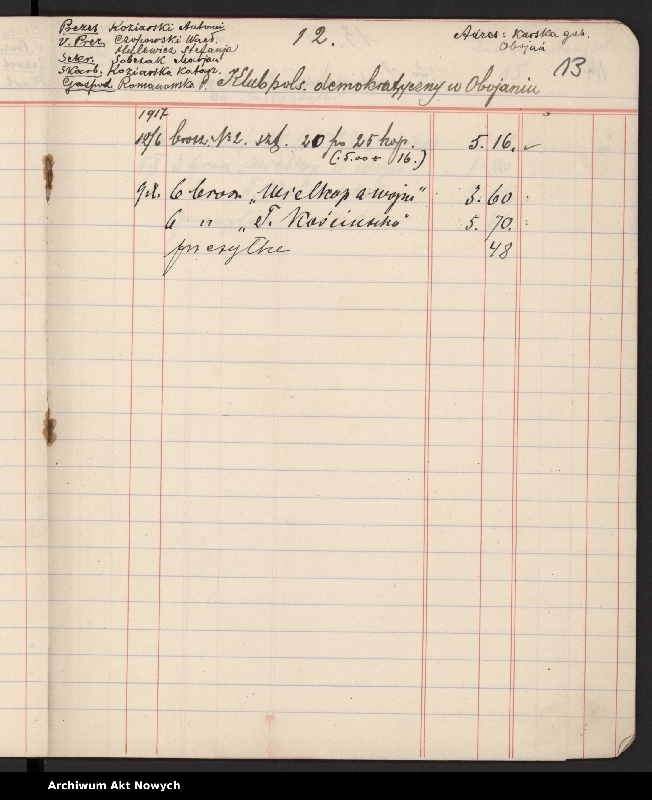 Prezes Koziarski Antoni
V. Prez. Czosowski Wacł.
Mulewicz Stefanja
Sekr. Sobczak Marjan
Skarb. Koziarska Katarz.
Gospod. Romanowska P.
12.
Adres: Kurska gub.
Obojań
13
Klub pols. demokratyczny w Obojaniu
1917
12/6 brosz. № 2. szt. 20 po 25 kop. 5. 16.
(5.00 + 16.)
6 bros. „Wielkop a wojn" 3. 60
6 " „T. Kościuszko" 5. 70.
przesyłka 48
Archiwum Akt Nowych